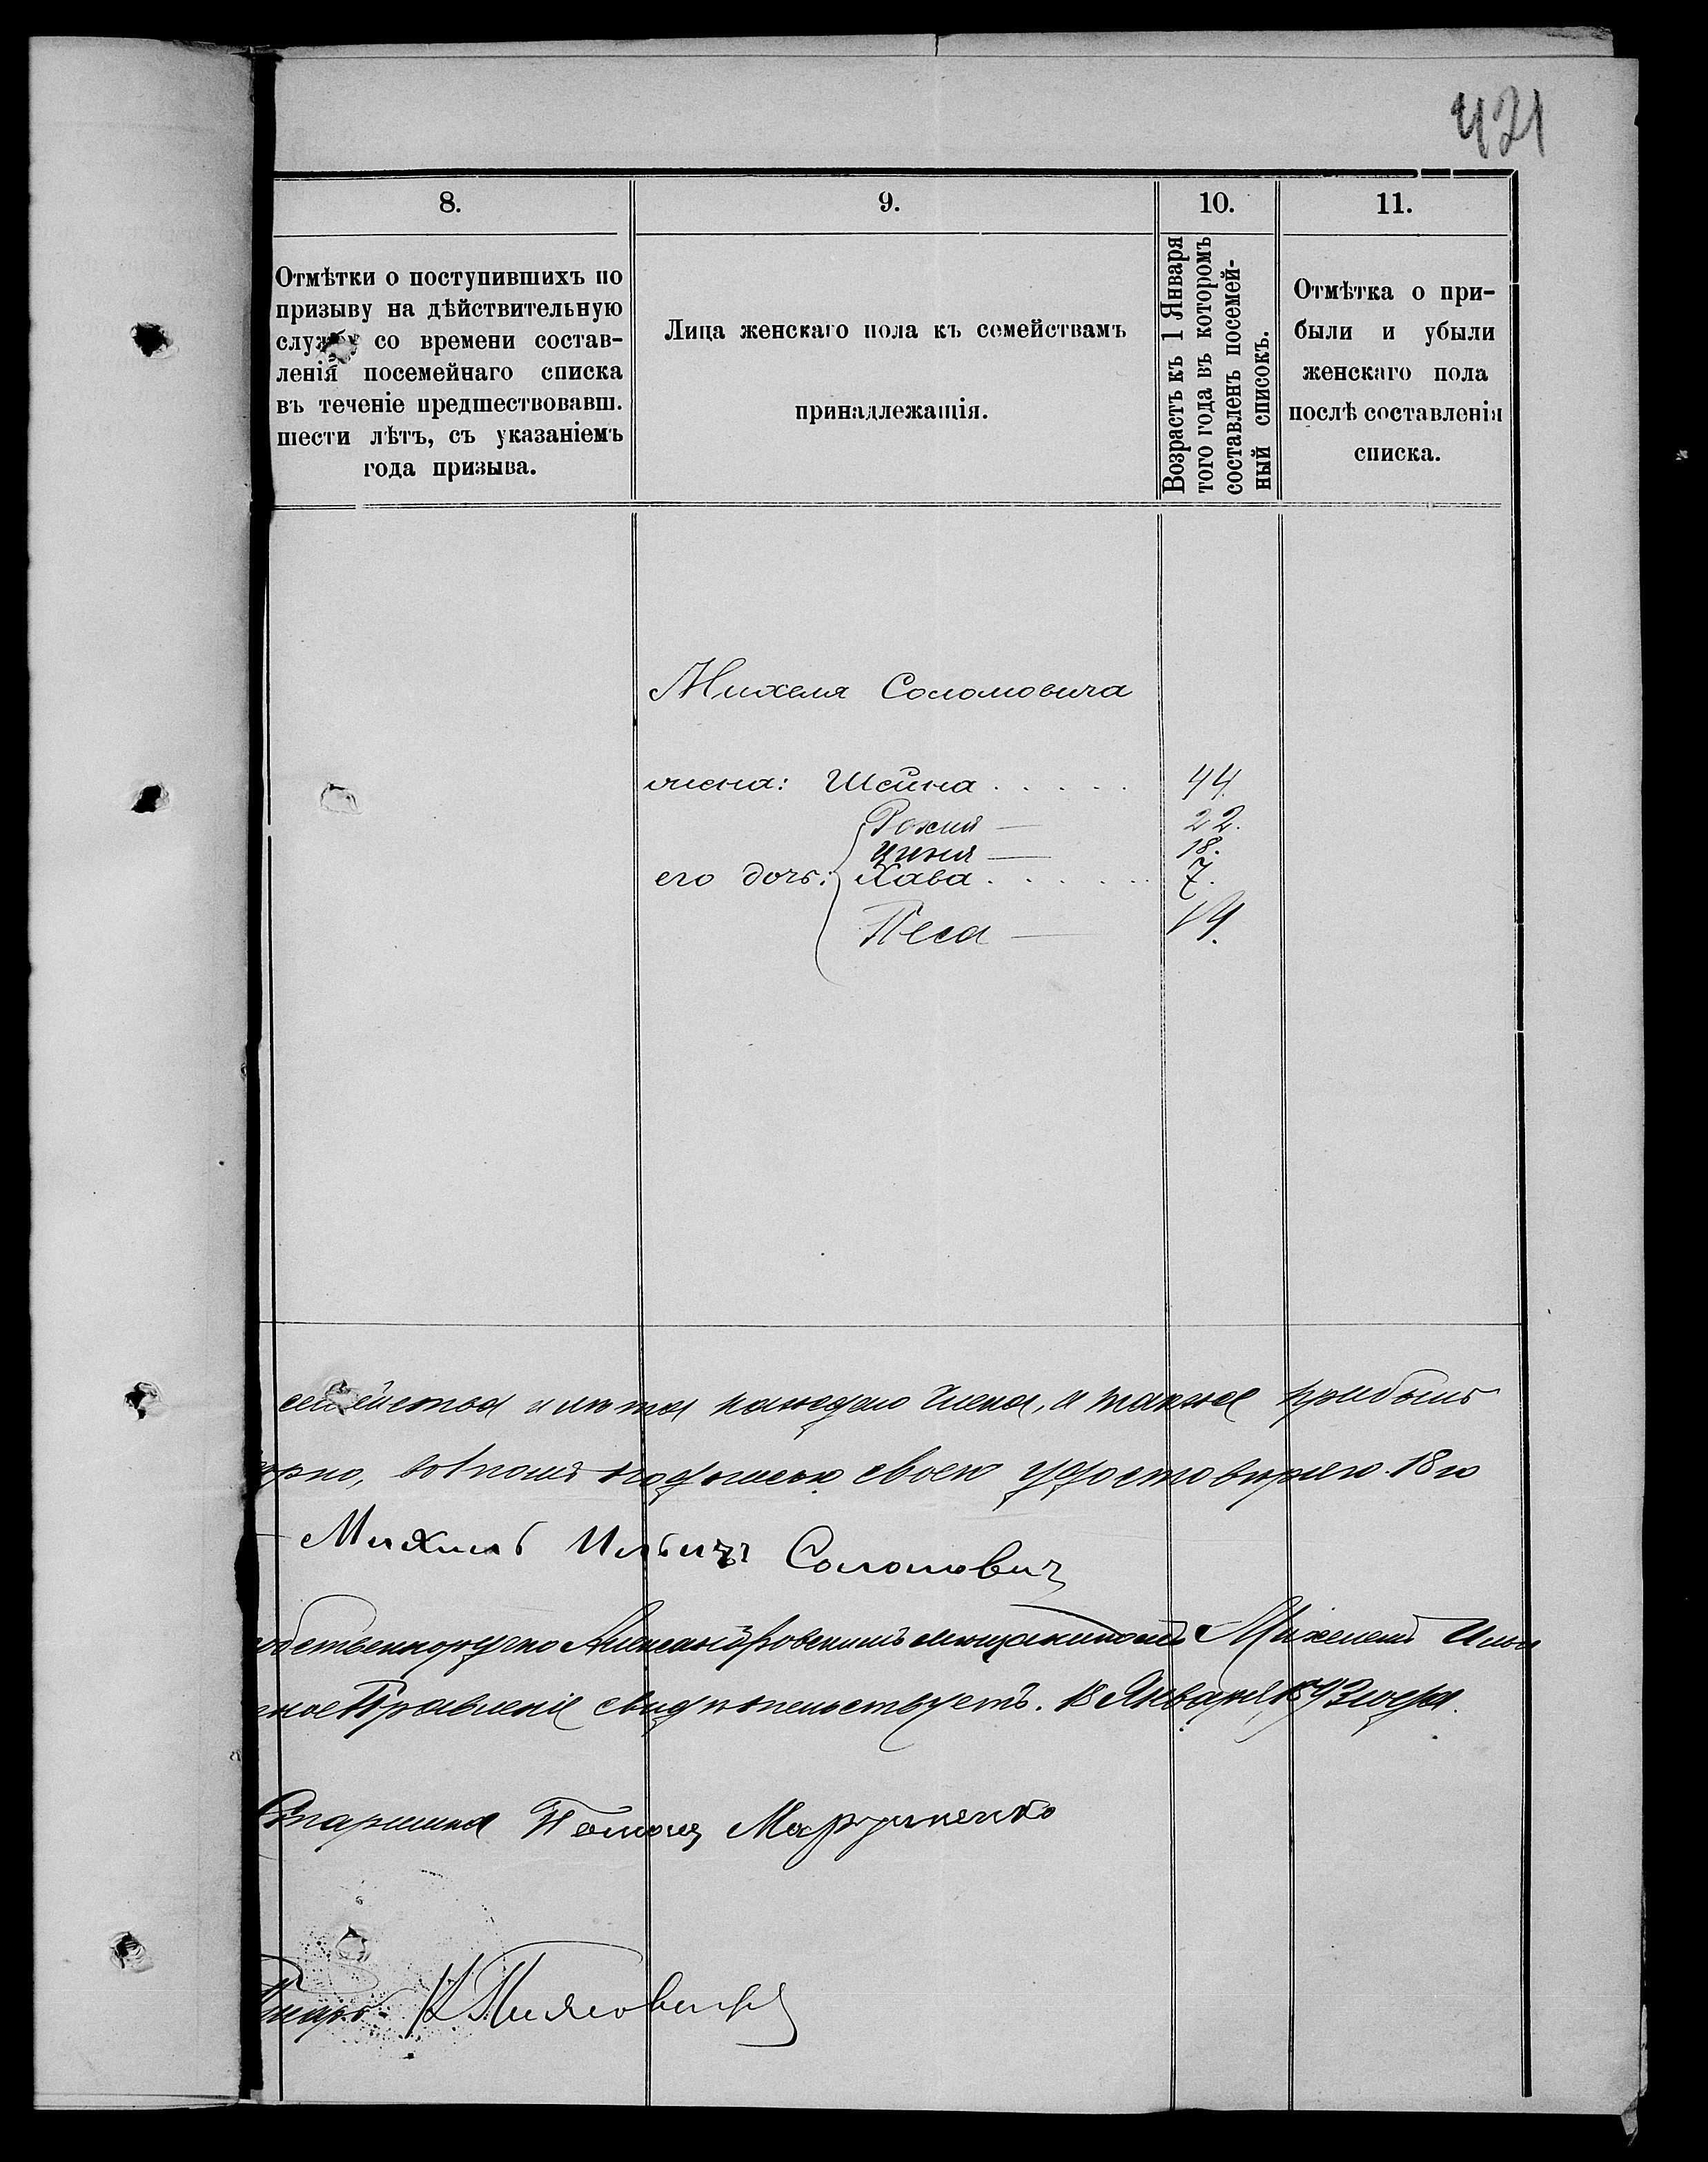 421
8.
9.
10.
11.
Отмѣтки о поступившихъ по
призыву на дѣйствительную
службу со времени состав-
ленія посемейнаго списка
въ теченіе предшествовавш.
шести лѣтъ, съ указаніемъ
года призыва.
Лица женскаго пола къ семействамъ
принадлежащія.
Возрастъ къ 1 Января
того года въ которомъ
составленъ посемей-
ный списокъ.
Отмѣтка о при-
были и убыли
женскаго пола
послѣ составленія
списка.
Михеля Соломовича
жена: Шейна . . . . . 44.
22.
18.
его дочь: Хава . . . . . . 7.
Песа — 19.
семейства и лѣта каждаго члена, а также прибыль
вѣрно, въ томъ подписью своею удостовѣряю. 18
Михель Соломовичъ
собственноручно Александровскимъ мѣщаниномъ Михелемъ
Правленіе свидѣтельствуетъ. 18 Января 1893 года.
Старшина